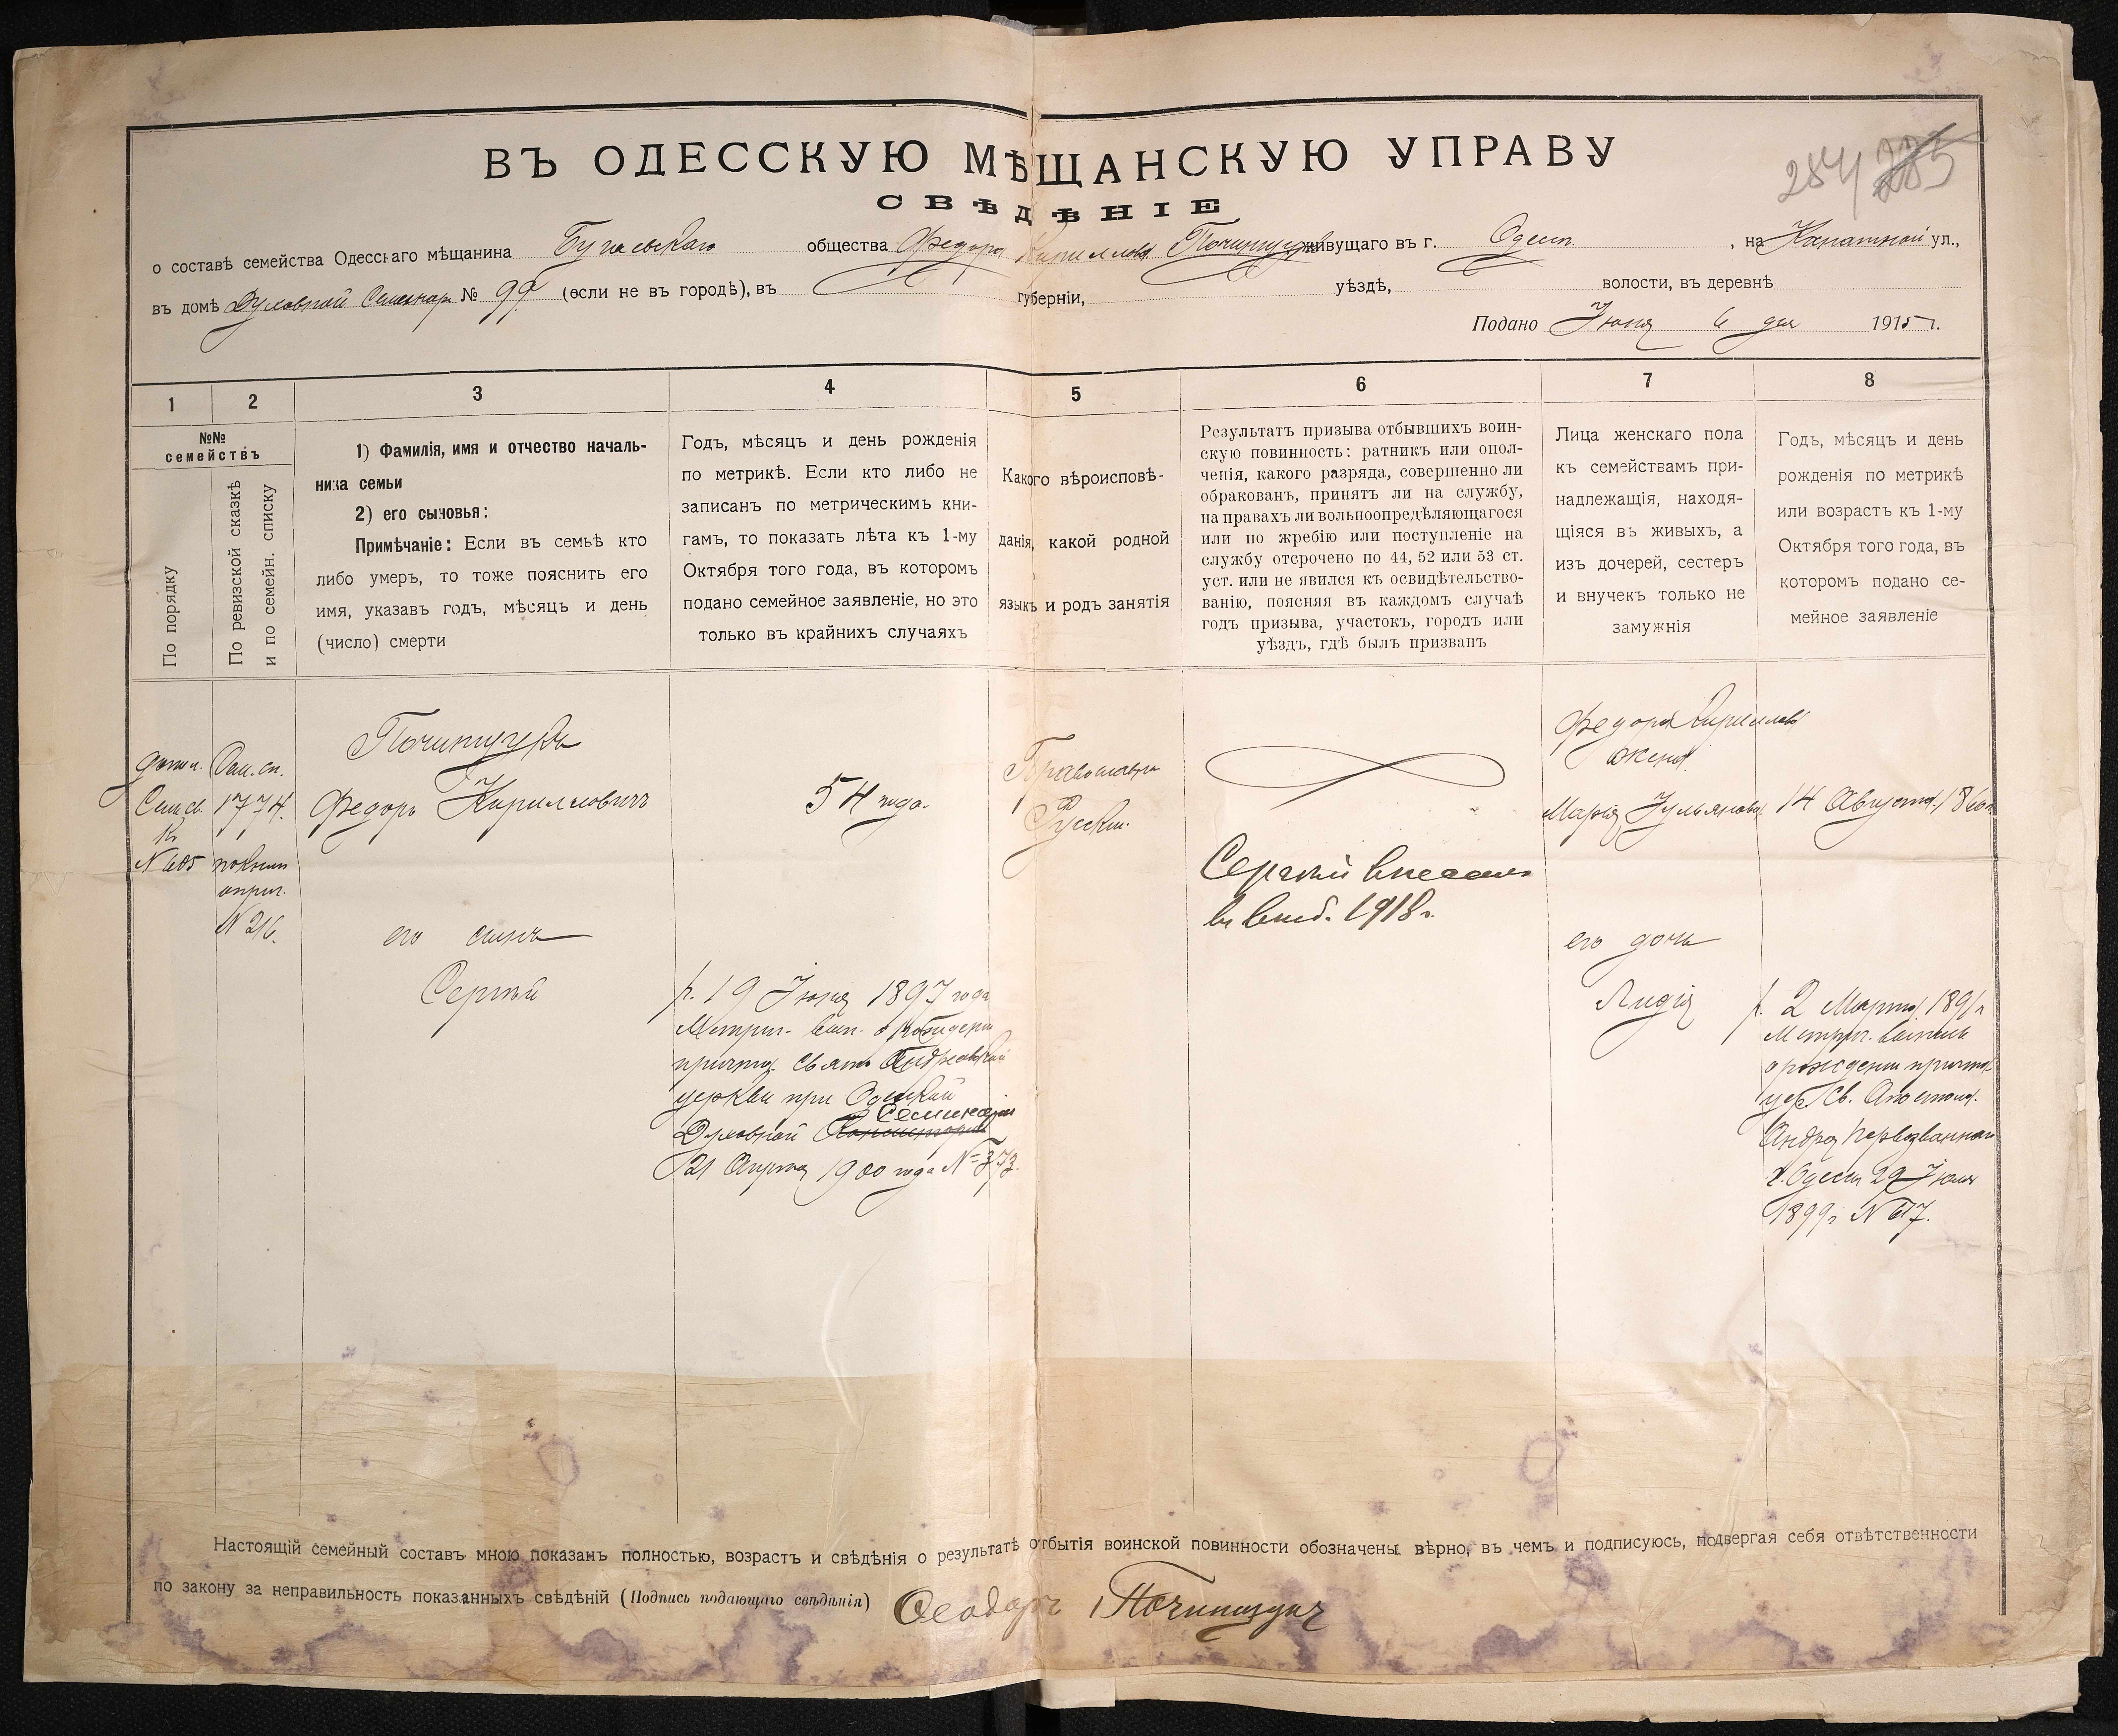 ВЪ ОДЕССКУЮ МѢЩАНСКУЮ УПРАВУ
284
СВѢДѢНІЕ
о составѣ семейства Одесскаго мѣщанина общества Федора Кириллова живущаго въ г. Одесс. , на Канатной ул.,
въ домѣ Духовной Семинар. № 99 (если не въ городѣ), въ губерніи, уѣзда, волости, въ деревнѣ
Подано Іюня 6 дня 1915 г.
1 2 3 4 5 6 7 8
№№
семействъ
По порядку
По ревизской сказкѣ
и по семейн. списку
1) Фамилія, имя и отчество началь-
ника семьи
2) его сыновья:
Примѣчаніе: Если въ семьѣ кто
либо умеръ, то тоже пояснить его
имя, указавъ годъ, мѣсяцъ и день
(число) смерти
Годъ, мѣсяцъ и день рожденія
по метрикѣ. Если кто либо не
записанъ по метрическимъ кни-
гамъ, то показать лѣта къ 1-му
Октября того года, въ которомъ
подано семейное заявленіе, но это
только въ крайнихъ случаяхъ
Какого вѣроисповѣ-
данія, какой родной
языкъ и родъ занятія
Результатъ призыва отбывшихъ воин-
скую повинность: ратникъ или опол-
ченія, какого разряда, совершенно ли
обракованъ, принятъ ли на службу,
на правахъ ли вольноопредѣляющагося
или по жребію или поступленіе на
службу отсрочено по 44, 52 или 53 ст.
уст. или не явился къ освидѣтельство-
ванію, поясняя въ каждомъ случаѣ
годъ призыва, участокъ, городъ или
уѣздъ, гдѣ былъ призванъ
Лица женскаго пола
къ семействамъ при-
надлежащія, находя-
щіяся въ живыхъ, а
изъ дочерей, сестеръ
и внучекъ только не
замужнія
Годъ, мѣсяцъ и день
рожденія по метрикѣ
или возрастъ къ 1-му
Октября того года, въ
которомъ подано се-
мейное заявленіе
1774.
N 216.
Федоръ Кирилловичъ
его сынъ
Сергѣй
54 года.
р. 19 Іюня 1897 года
Метрич. вып. о рожденіи
причта Свято Андреевской
церкви при Одесской
Семинаріи
Духовной Консисторіи
21 Апрѣля 1900 года № 373.
Православн.
Русскій.
Сергѣй внесенъ
въ 1918 г.
Федора Кириллова
жена
Марія Ульянова 14 Августа
его дочь
Лидія
р. 2 Марта 1891 г.
Метрич. выпись
о рожденіи причта
цер. Св. Апостола
Андрея Первозваннаго
г. Одессы 29 Іюля
1899 г. №
Настоящій семейный составъ мною показанъ полностью, возрастъ и свѣдѣнія о результатѣ отбытія воинской повинности обозначены вѣрно, въ чемъ и подписуюсь, подвергая себя отвѣтственности
по закону за неправильность показанныхъ свѣдѣній (Подпись подающаго свѣдѣнія) Ѳеодоръ